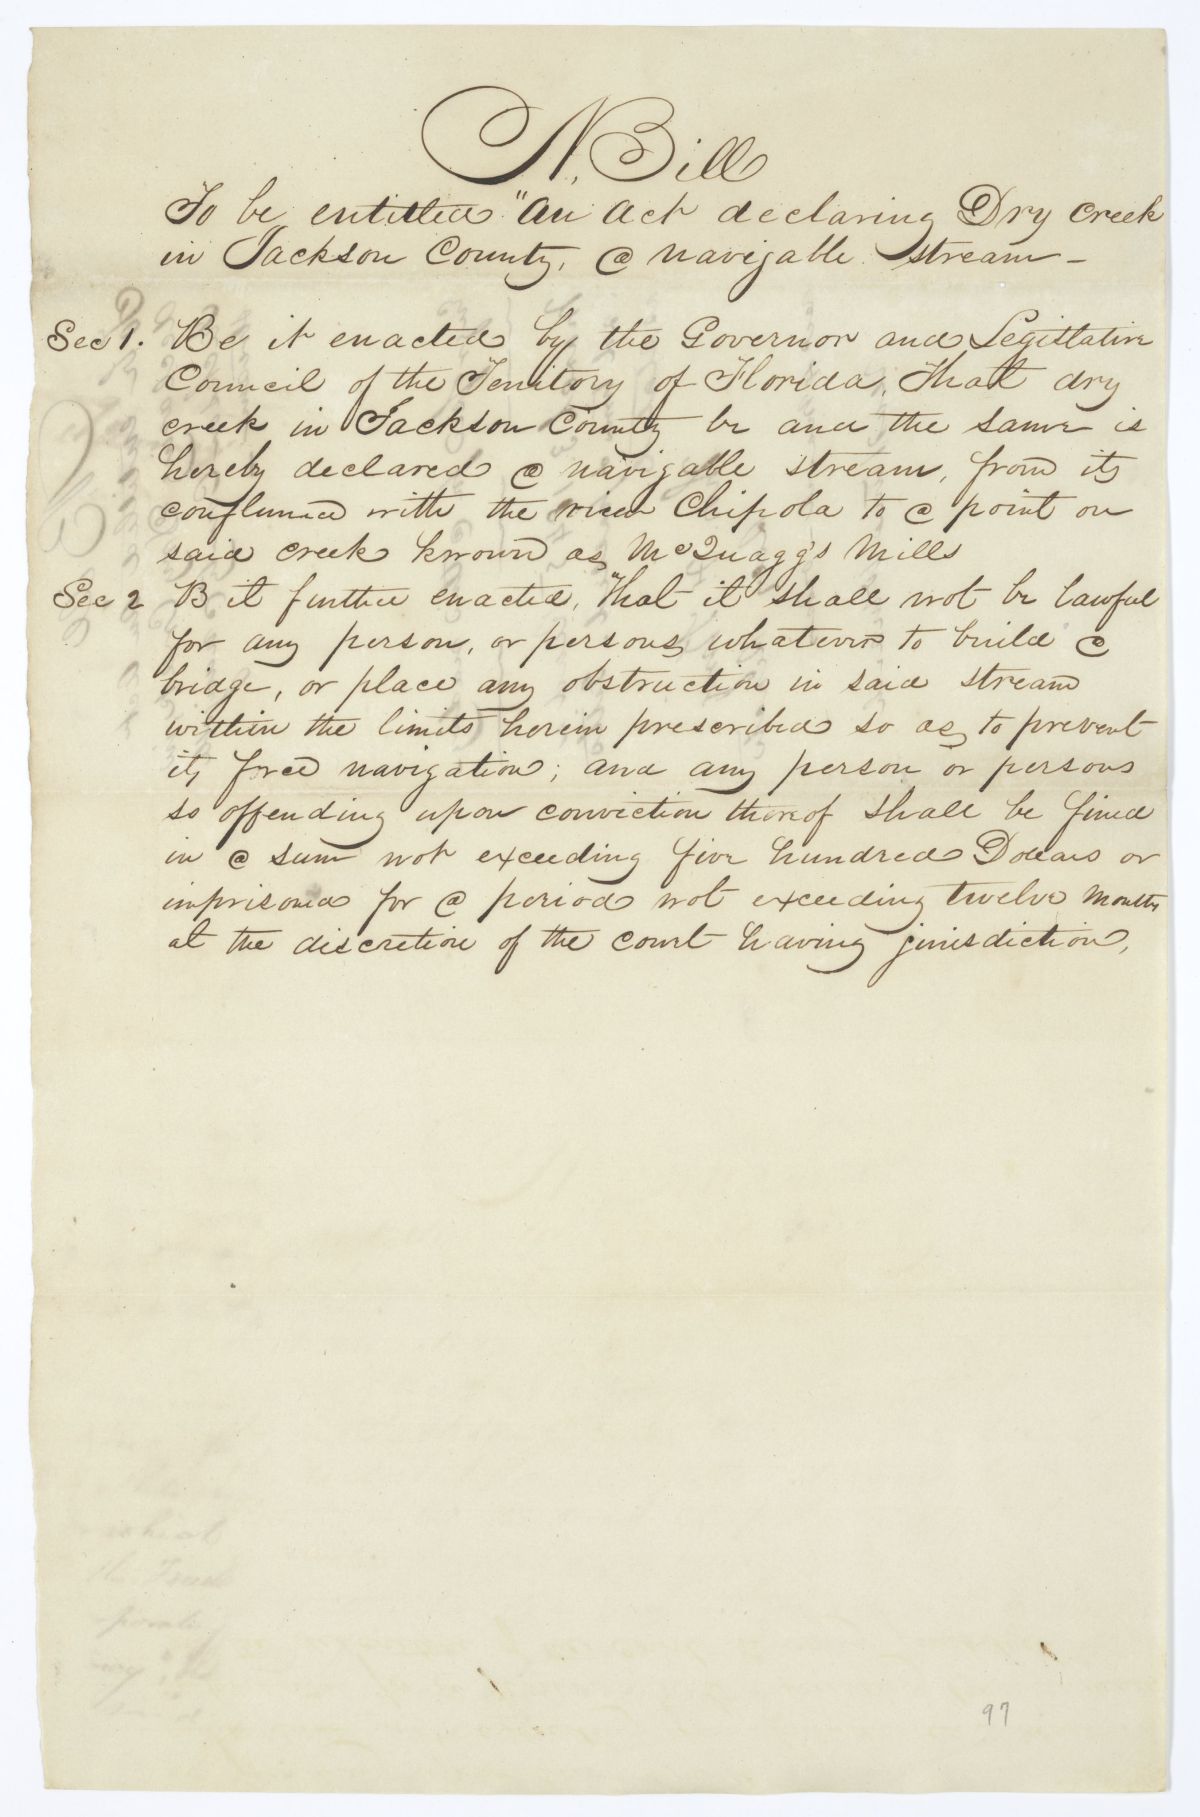 A. Bill
To be entitled "An Act declaring Dry Creek
in Jackson County, a navigable stream -
Sec 1. Be it enacted by the Governor and Legislative
Council of the Territory of Florida, That dry
creek in Jackson County be and the same is
hereby declared a navigable stream, from its
confluence with the river Chipola to a point on
said creek known as McQuagg's Mills
Sec 2 B it further enacted, That it shall not be lawful
for any person, or persons whatever to build a
bridge, or place any obstruction in said stream
within the limits herein prescribed so as to prevent
its free navigation; and any person or persons
so offending upon conviction thereof shall be fined
in a sum not exceeding five hundred Dollars or
imprisoned for a period not exceeding twelve months
at the discretion of the court having jurisdiction,
97